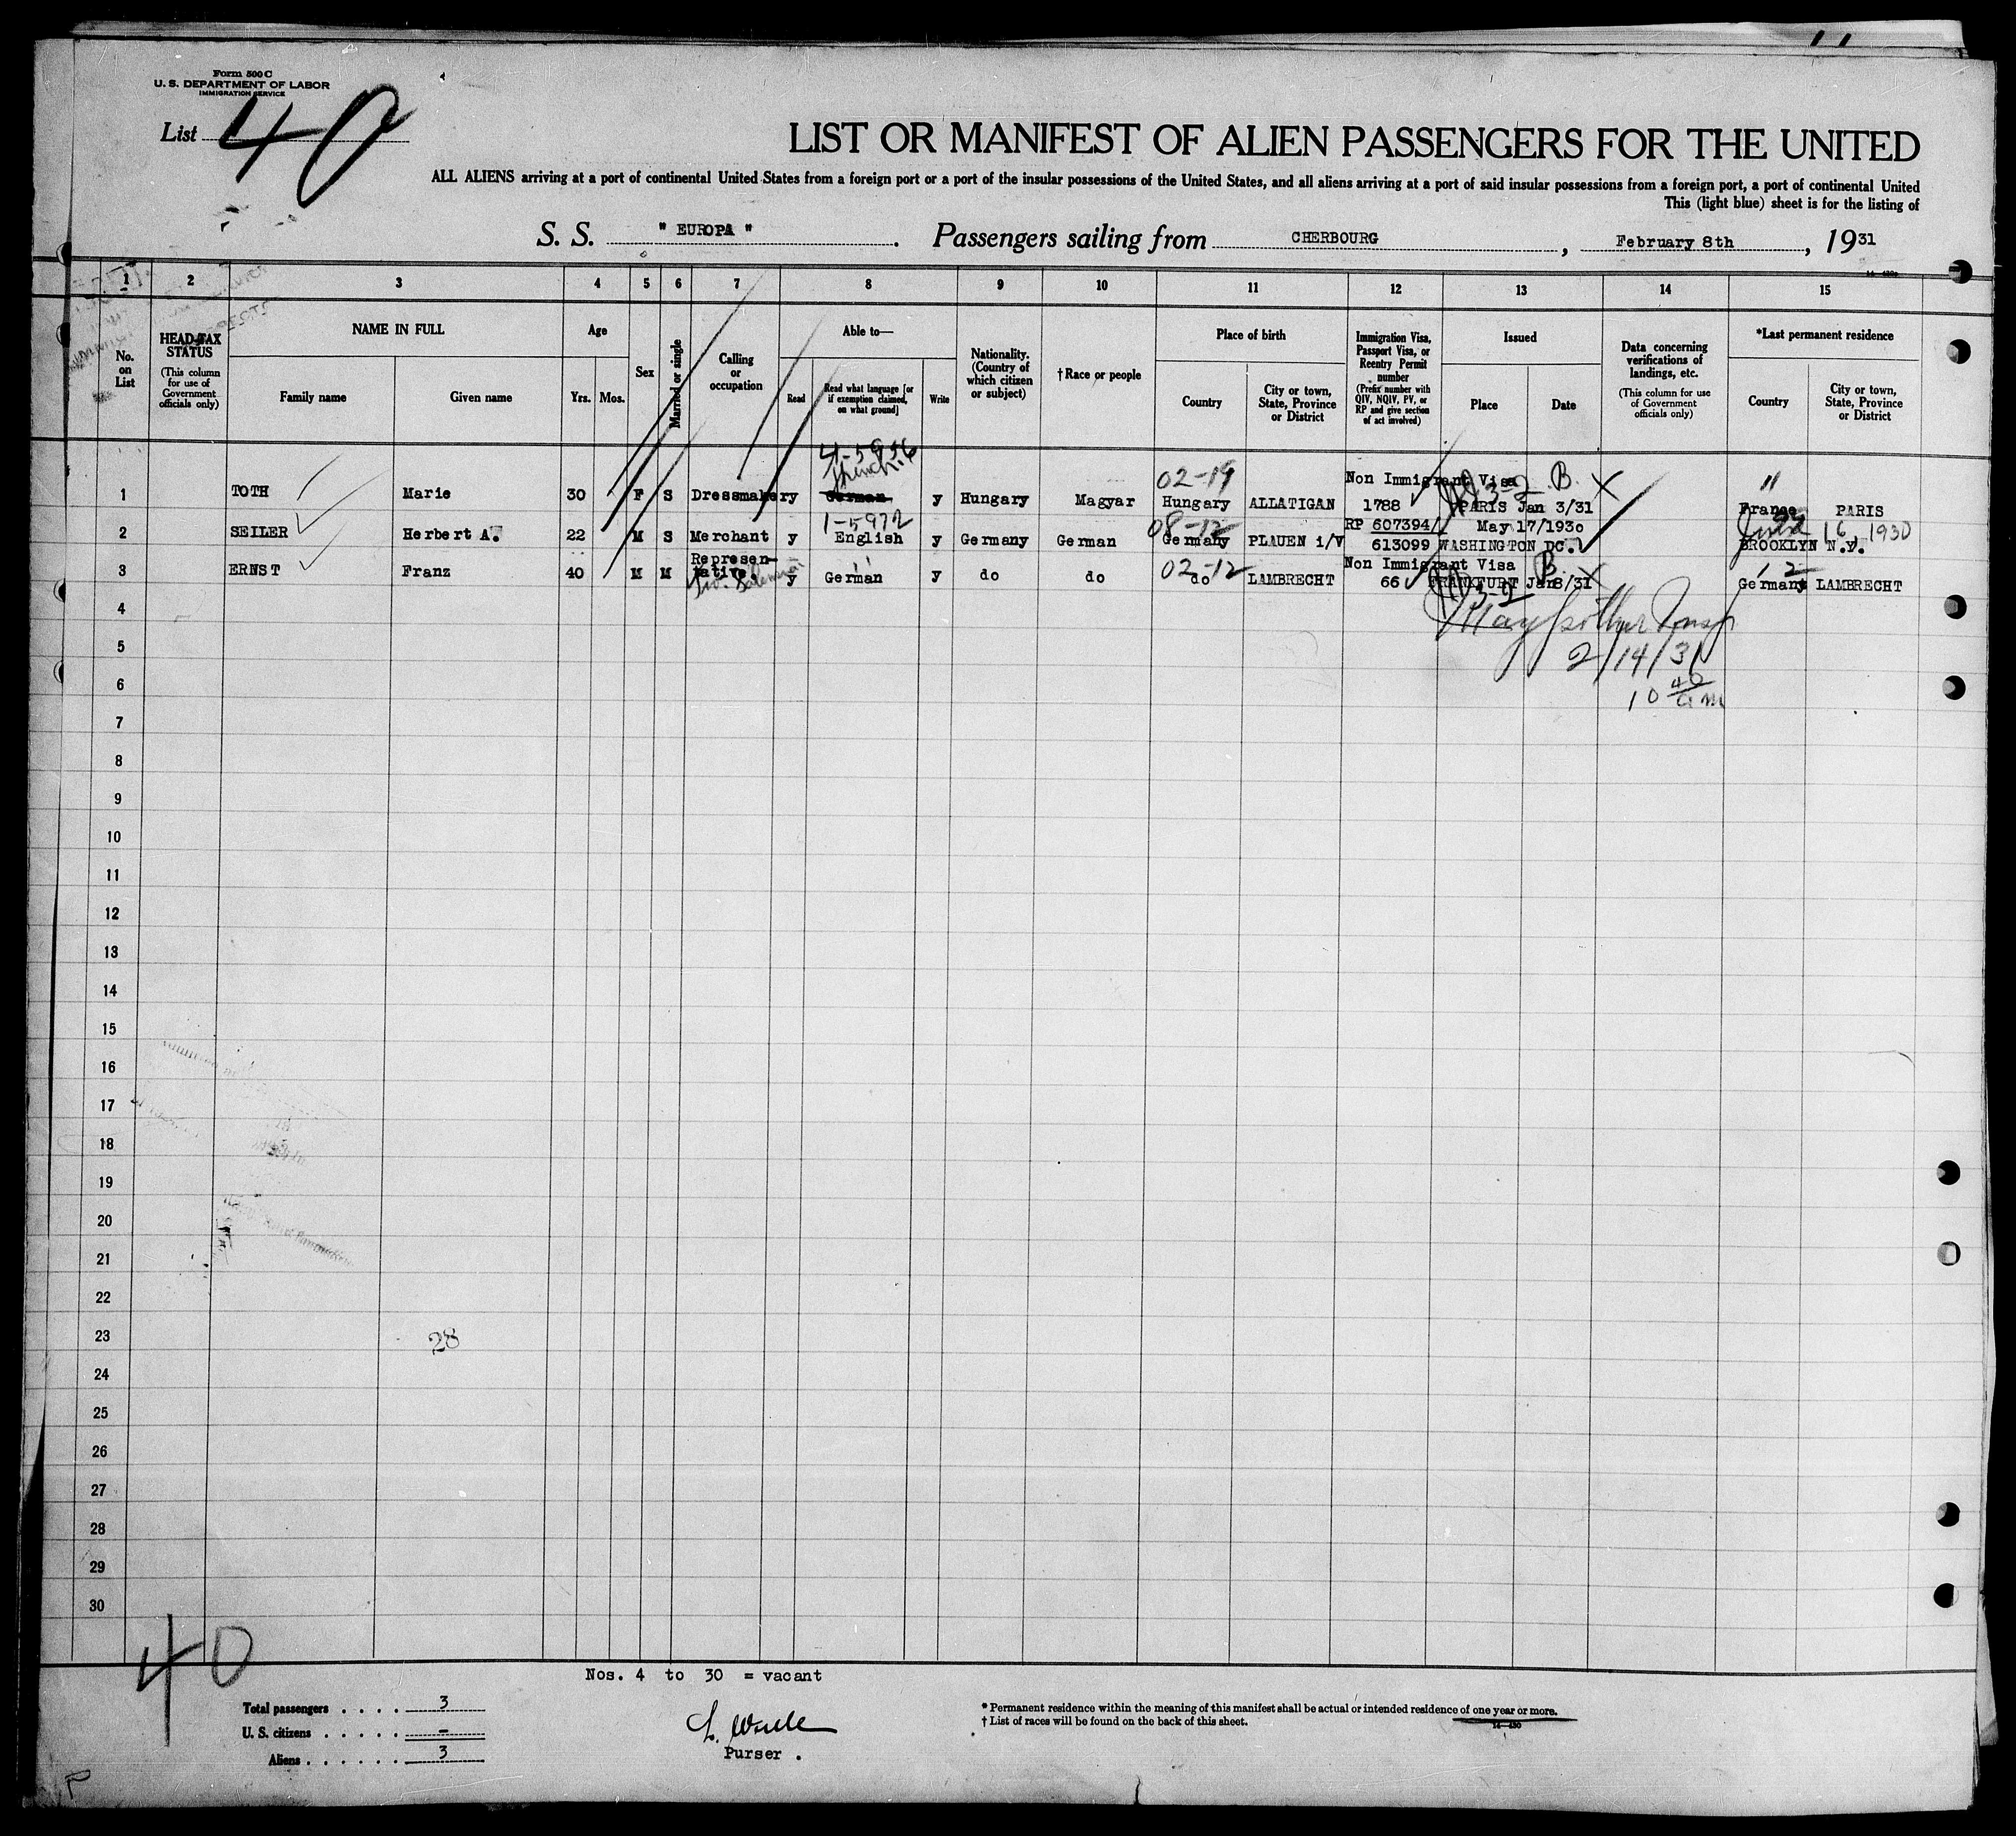 Form 500 C
U. S. DEPARTMENT OF LABOR
IMMIGRATION SERVICE
List 40
LIST OR MANIFEST OF ALIEN PASSENGERS FOR THE UNITED
ALL ALIENS arriving at a port of continental United States from a foreign port or a port of the insular possessions of the United States, and all aliens arriving at a port of said insular possessions from a foreign port, a port of continental United
This (light blue) sheet is for the listing of
S. S. " EUROPA " . Passengers sailing from CHERBOURG , February 8th , 1931
1 2 3 4 5 6 7 8 9 10 11 12 13 14 15
No. on List
HEAD-TAX STATUS
(This column for use of Government officials only)
NAME IN FULL
Family name Given name
Age
Yrs. Mos.
Sex
Married or single
Calling or occupation
Able to—
Read
Read what language [or if exemption claimed, on what ground]
Write
Nationality. (Country of which citizen or subject)
† Race or people
Place of birth
Country
City or town, State, Province or District
Immigration Visa, Passport Visa, or Reentry Permit number
(Prefix number with QIV, NQIV, PV, or RP and give section of act involved)
Issued
Place Date
Data concerning verifications of landings, etc.
(This column for use of Government officials only)
*Last permanent residence
Country
City or town, State, Province or District
4-5956
French 02-19 Non Immigrant Visa 3-2 B. X 11
1 TOTH Marie 30 F S Dressmakery German y Hungary Magyar Hungary ALLATIGAN 1788 PARIS Jan 3/31 France PARIS
1-5972 08-12 RP 607394/ May 17/1930 June 16, 1930
2 SEILER Herbert A. 22 M S Merchant y English y Germany German Germany PLAUEN i/V 613099 WASHINGTON DC. BROOKLYN N.Y.
Represen- 02-12 Non Immigrant Visa B. X 12
3 ERNST Franz 40 M M tative y German y do do do LAMBRECHT 66 FRANKFURT Jan 8/31 Germany LAMBRECHT
3-2
4
5
2/14/31
6
10 40 am
7
8
9
10
11
12
13
14
15
16
17
18
19
20
21
22
23
28
24
25
26
27
28
29
30
40
Nos. 4 to 30 = vacant
Total passengers . . . . 3
U. S. citizens . . . . . –
Aliens . . . . . . 3
Purser .
* Permanent residence within the meaning of this manifest shall be actual or intended residence of one year or more.
† List of races will be found on the back of this sheet.
14—430